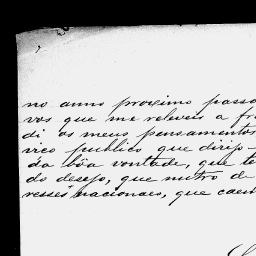 no anno proximo passa
vos que me releveis a fr
di os meus pensamentos
vico publico que dirip-
da bôa vontade, que t
do desejo, que nutro de
resses nacionaes, que caes